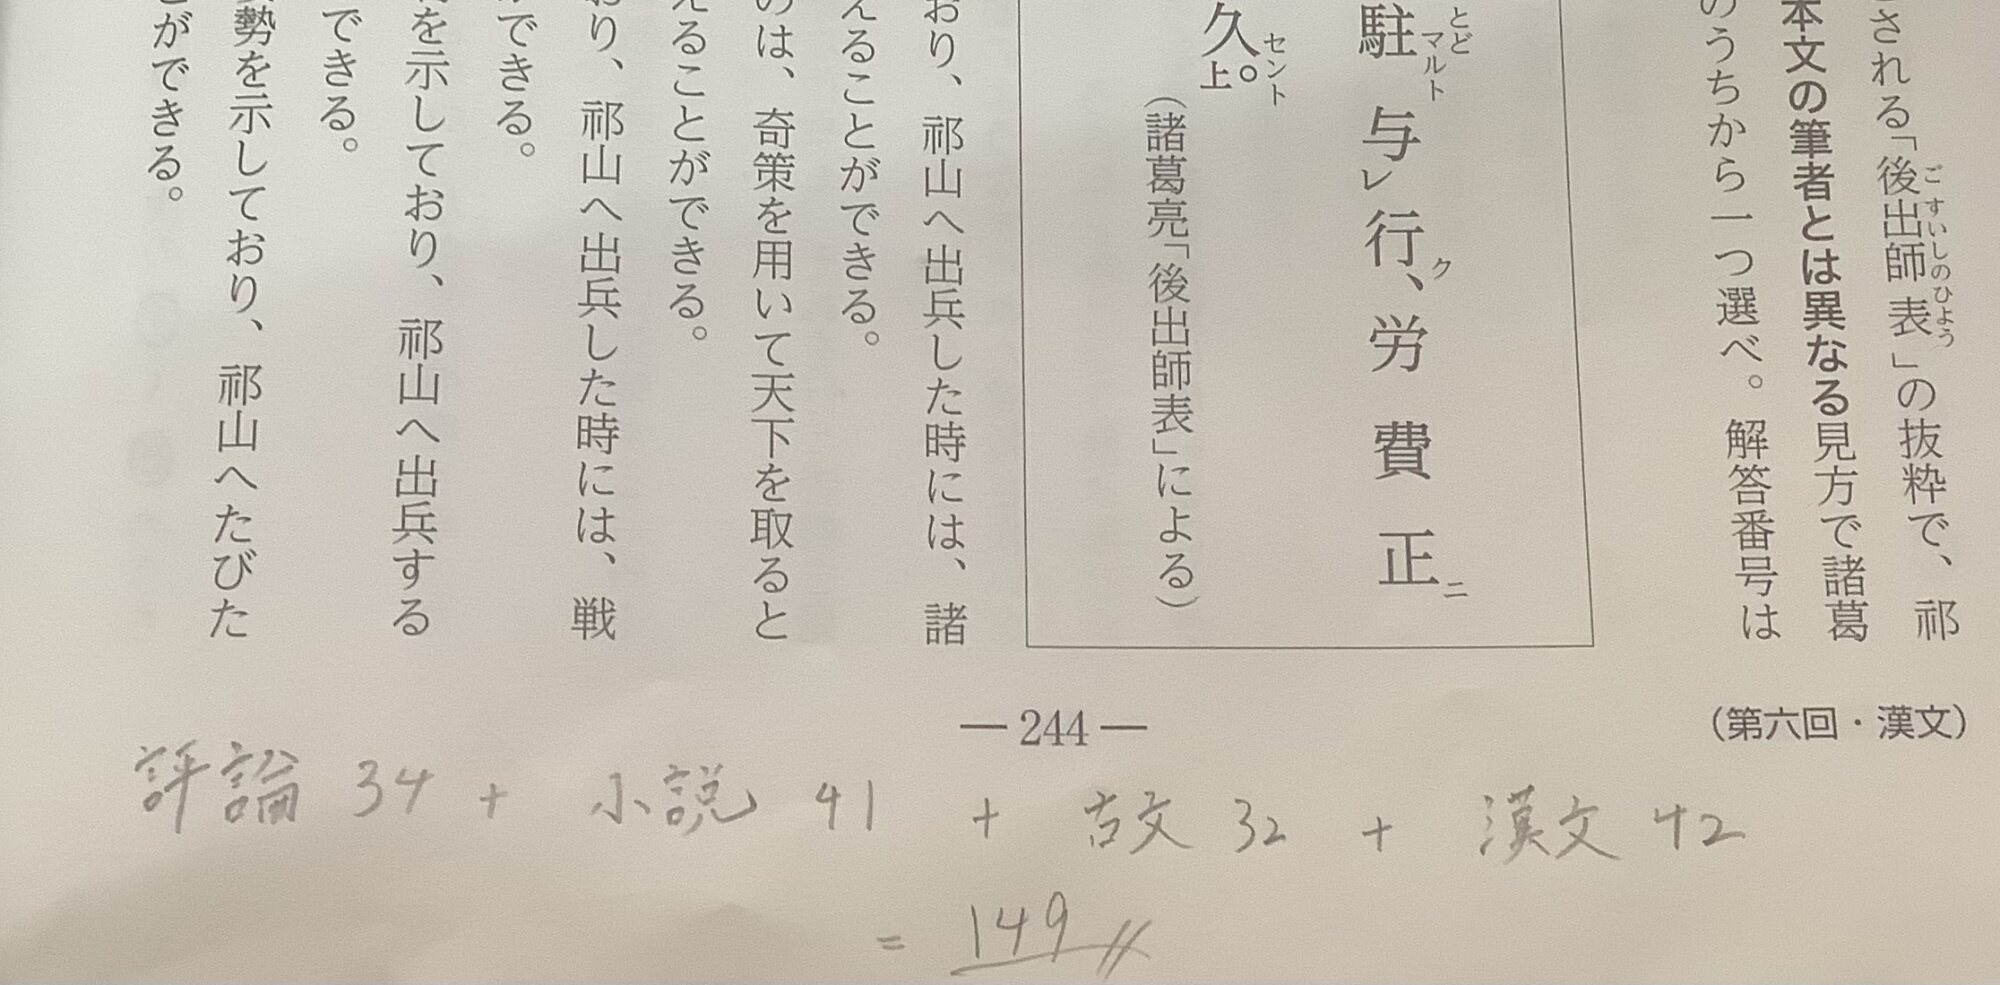 される「後出師表」の抜粋で、祁
本文の筆者とは異なる見方で諸葛
のうちから一つ選べ。解答番号は
駐マルト与レ行、ク労費正ニ
久。セント上
(諸葛亮「後出師表」による)
おり、祁山へ出兵した時には、諸
えることができる。
のは、奇策を用いて天下を取ると
えることができる。
おり、祁山へ出兵した時には、戦
できる。
を示しており、祁山へ出兵する
できる。
勢を示しており、祁山へたびた
とができる。
(第六回・漢文)
— 244 —
評論 34 + 小説 41 + 古文 32 + 漢文 42
= 149